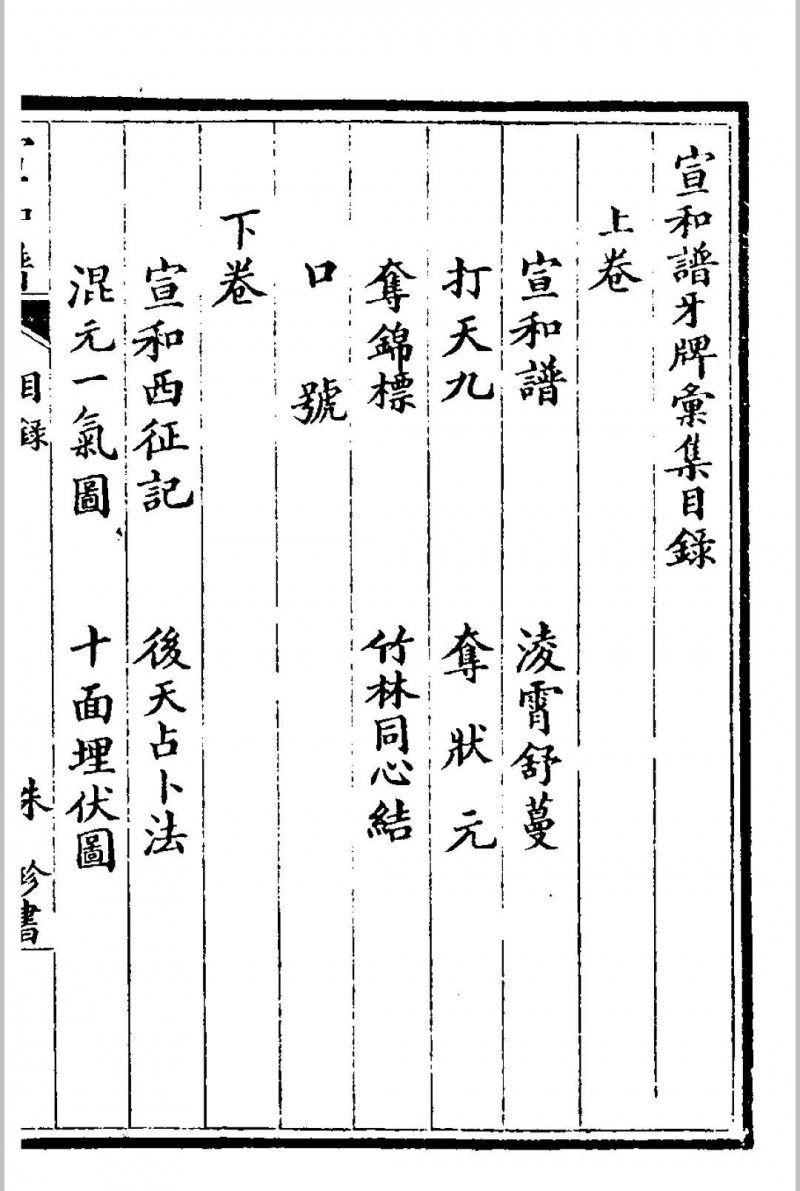 宣和譜牙牌彙集目錄
上卷
宣和譜 淩霄舒蔓
打天九 奪狀元
奪錦標 竹林同心結
口號
下卷
宣和西征記 後天占卜法
混元一氣圖 十面埋伏圖
宣和譜 目錄 珍書